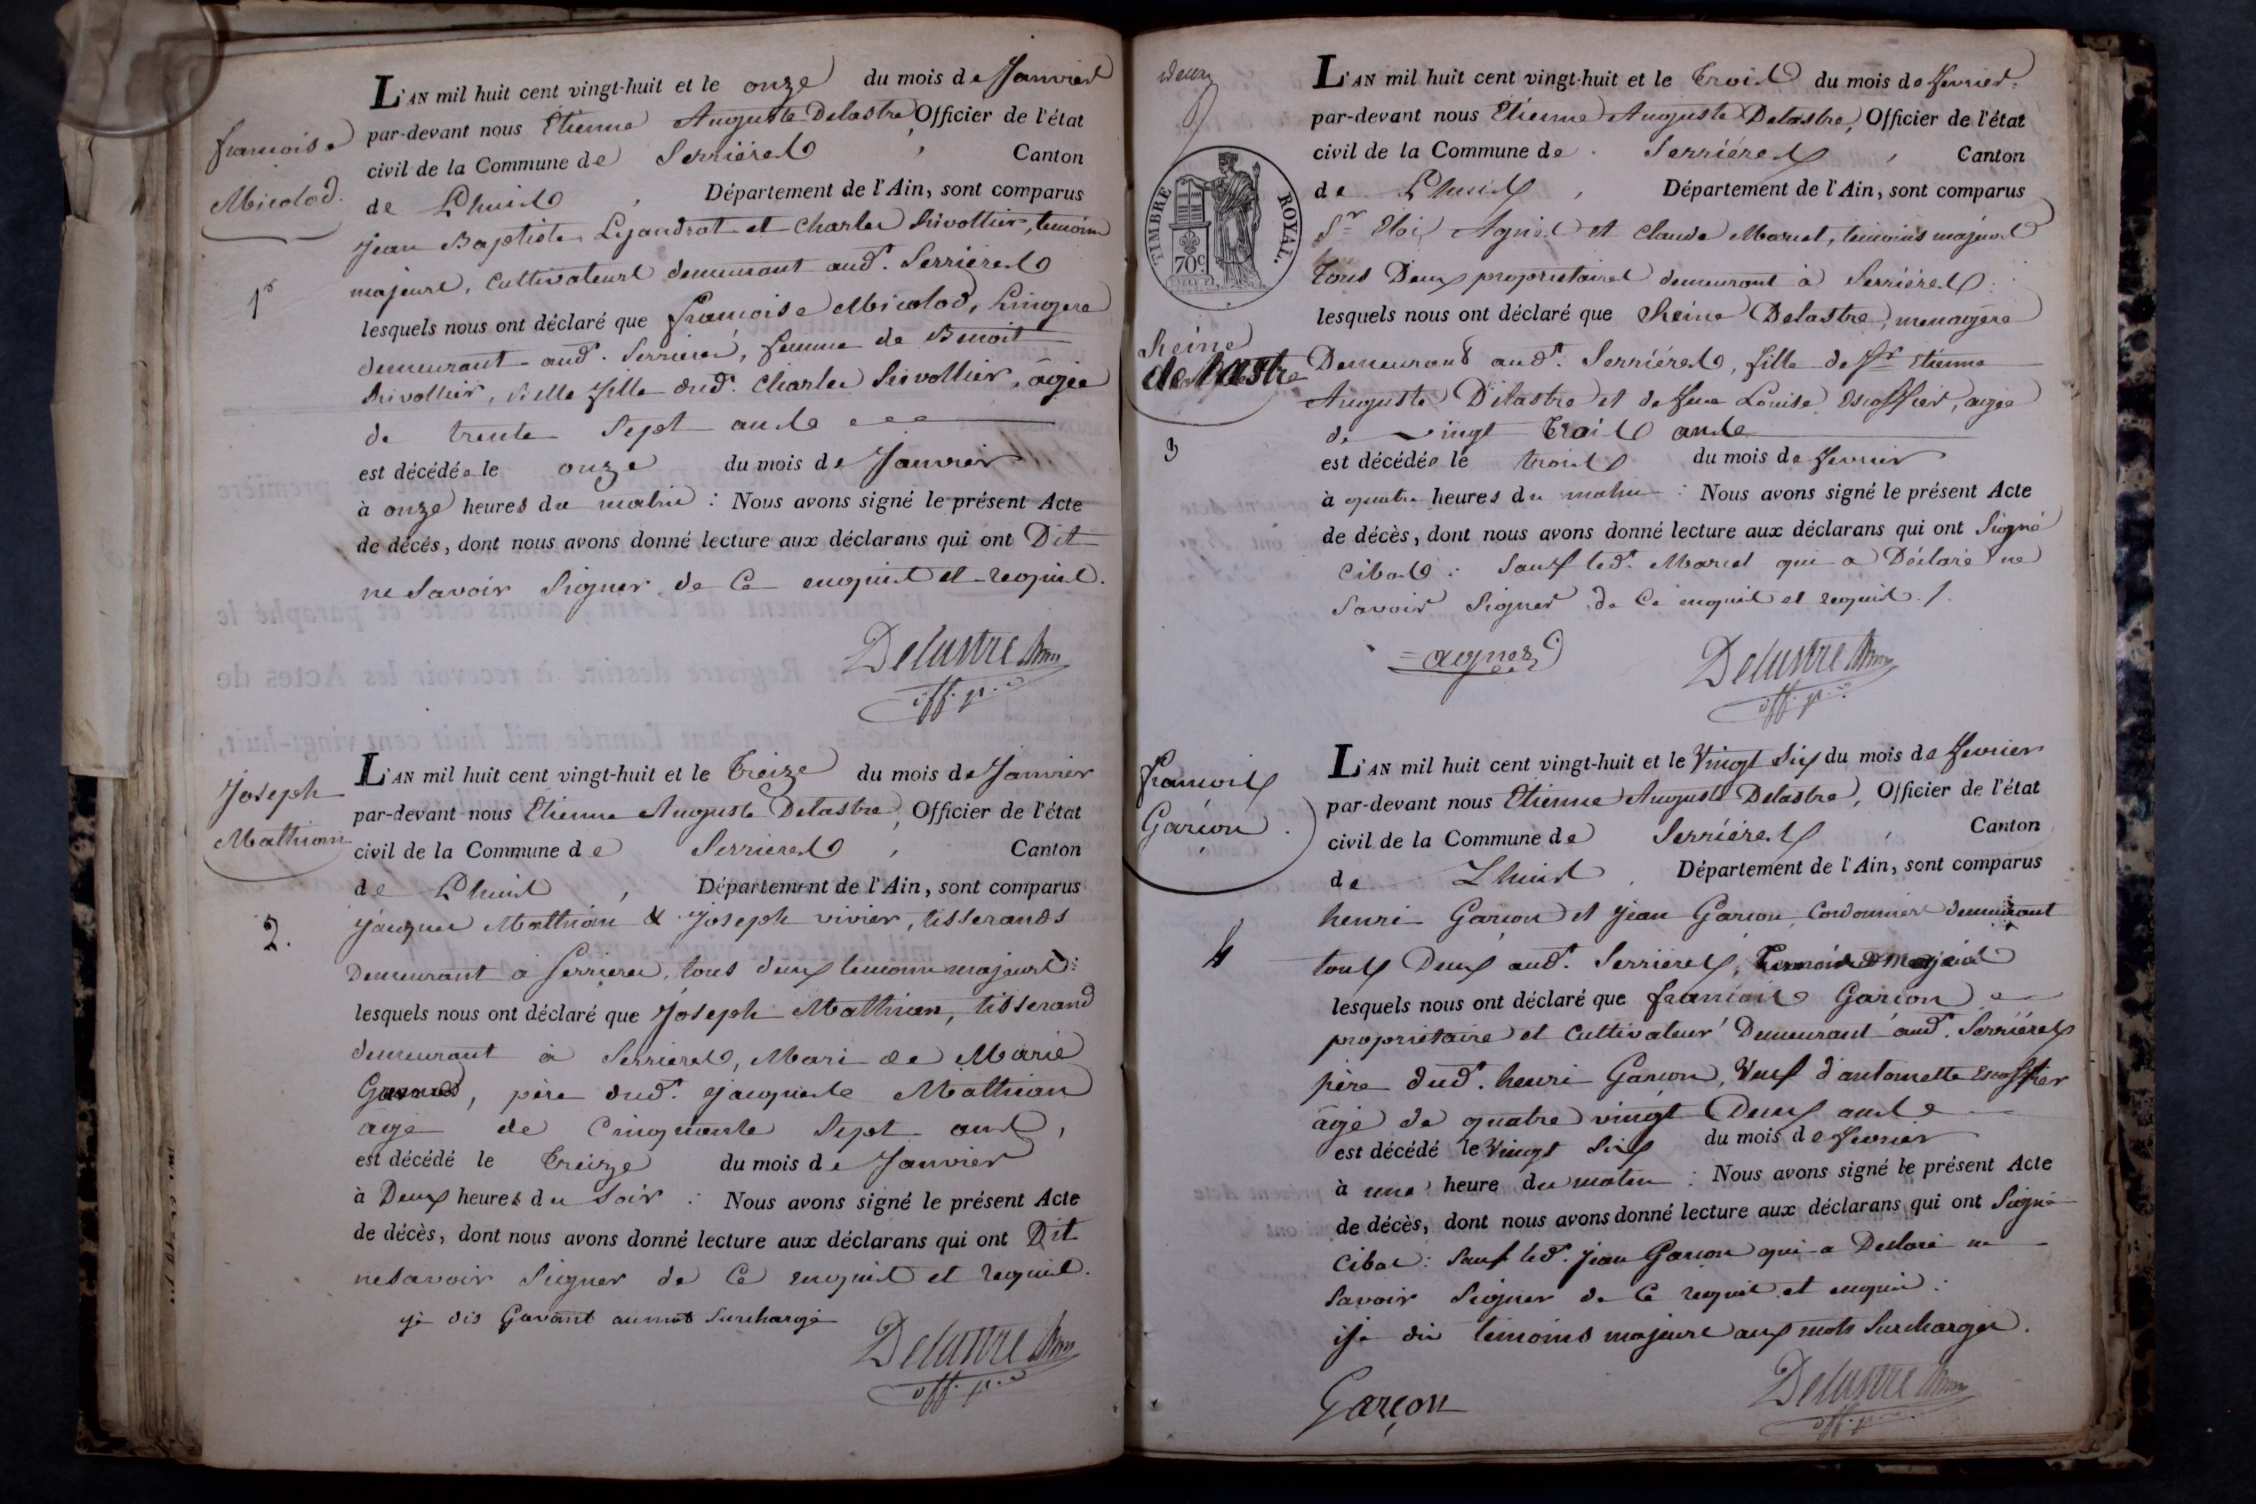 françoise
Micolod.
1.er
L'AN mil huit cent vingt-huit et le onze du mois de Janvier
par-devant nous Etienne Auguste Delastre Officier de l'état
civil de la Commune de Serriéres, Canton
de Lhuis, Département de l'Ain, sont comparus
Jean Baptiste Lejandrot et Charles Rivollier, temoins
majeurs, Cultivateurs demeurant aud.t Serriéres
lesquels nous ont déclaré que françoise Micolod, Lingere
demeurant aud.t Serrieres, femme de Benoit
Rivollier, belle fille dud.t Charles Rivollier, âgée
de trente Sept ans
est décédée le onze du mois de Janvier
à onze heures du matin : Nous avons signé le présent Acte
de décès, dont nous avons donné lecture aux déclarans qui ont Dit
ne Savoir Signer de Ce enquis et requis.
Delastre
off. p.
Joseph
Mathian
2.
L'AN mil huit cent vingt-huit et le Treize du mois de Janvier
par-devant nous Etienne Auguste Delastre, Officier de l'état
civil de la Commune de Serrieres, Canton
de Lhuis, Département de l'Ain, sont comparus
Jacques Mathian & Joseph vivier, tisserands
Demeurant à Serrieres, tous deux temoins majeurs :
lesquels nous ont déclaré que Joseph Mathian, tisserand
demeurant à Serrieres, Mari de Marie
, père dud.t Jacques Mathian
age de Cinquante Sept ans,
est décédé le Treize du mois de Janvier
à Deux heures du Soir : Nous avons signé le présent Acte
de décès, dont nous avons donné lecture aux déclarans qui ont Dit
ne Savoir Signer de Ce enquis et requis.
je dis Gavant au mot Surchargé
Delastre
off. p.
deux
TIMBRE ROYAL.
70c
Reine
delastre
3
L'AN mil huit cent vingt-huit et le Trois du mois de fevrier.
par-devant nous Etienne Auguste Delastre, Officier de l'état
civil de la Commune de Serriéres, Canton
de Lhuis, Département de l'Ain, sont comparus
S.r Eloi Agniel et Claude Marcel, temoins majeurs
Tous Deux proprietaires demeurant à Serriéres :
lesquels nous ont déclaré que Reine Delastre, menagère
Demeurant aud.t Serriéres, fille de S.r Etienne
Auguste Delastre et de feue Louise Escoffier, agée
de vingt Trois ans
est décédée le trois du mois de fevrier
à quatre heures du matin : Nous avons signé le présent Acte
de décès, dont nous avons donné lecture aux déclarans qui ont Signé
Cibas : Sauf led.t Marcel qui a Déclaré ne
Savoir Signer de Ce enquis et requis.
Delastre
off. p.
françois
Garçon
4
L'AN mil huit cent vingt-huit et le Vingt Six du mois de fevrier
par-devant nous Etienne Auguste Delastre, Officier de l'état
civil de la Commune de Serriéres, Canton
de Lhuis, Département de l'Ain, sont comparus
henri Garçon et Jean Garçon, Cordonnier demeurant
tous Deux aud.t Serrieres, Temoins Majeurs
lesquels nous ont déclaré que françois Garçon
proprietaire et Cultivateur Demeurant aud.t Serriéres
père dud.t henri Garçon, Veuf d'antoinette Escoffier
âgé de quatre vingt Deux ans
est décédé le Vingt Six du mois de fevrier
à une heure du matin : Nous avons signé le présent Acte
de décès, dont nous avons donné lecture aux déclarans qui ont Signé
Cibas : Sauf led.t Jean Garçon qui a Declaré ne
Savoir Signer de Ce requis et enquis :
je dis temoins majeurs aux mots Surchargés.
Garçon
Delastre
off. p.